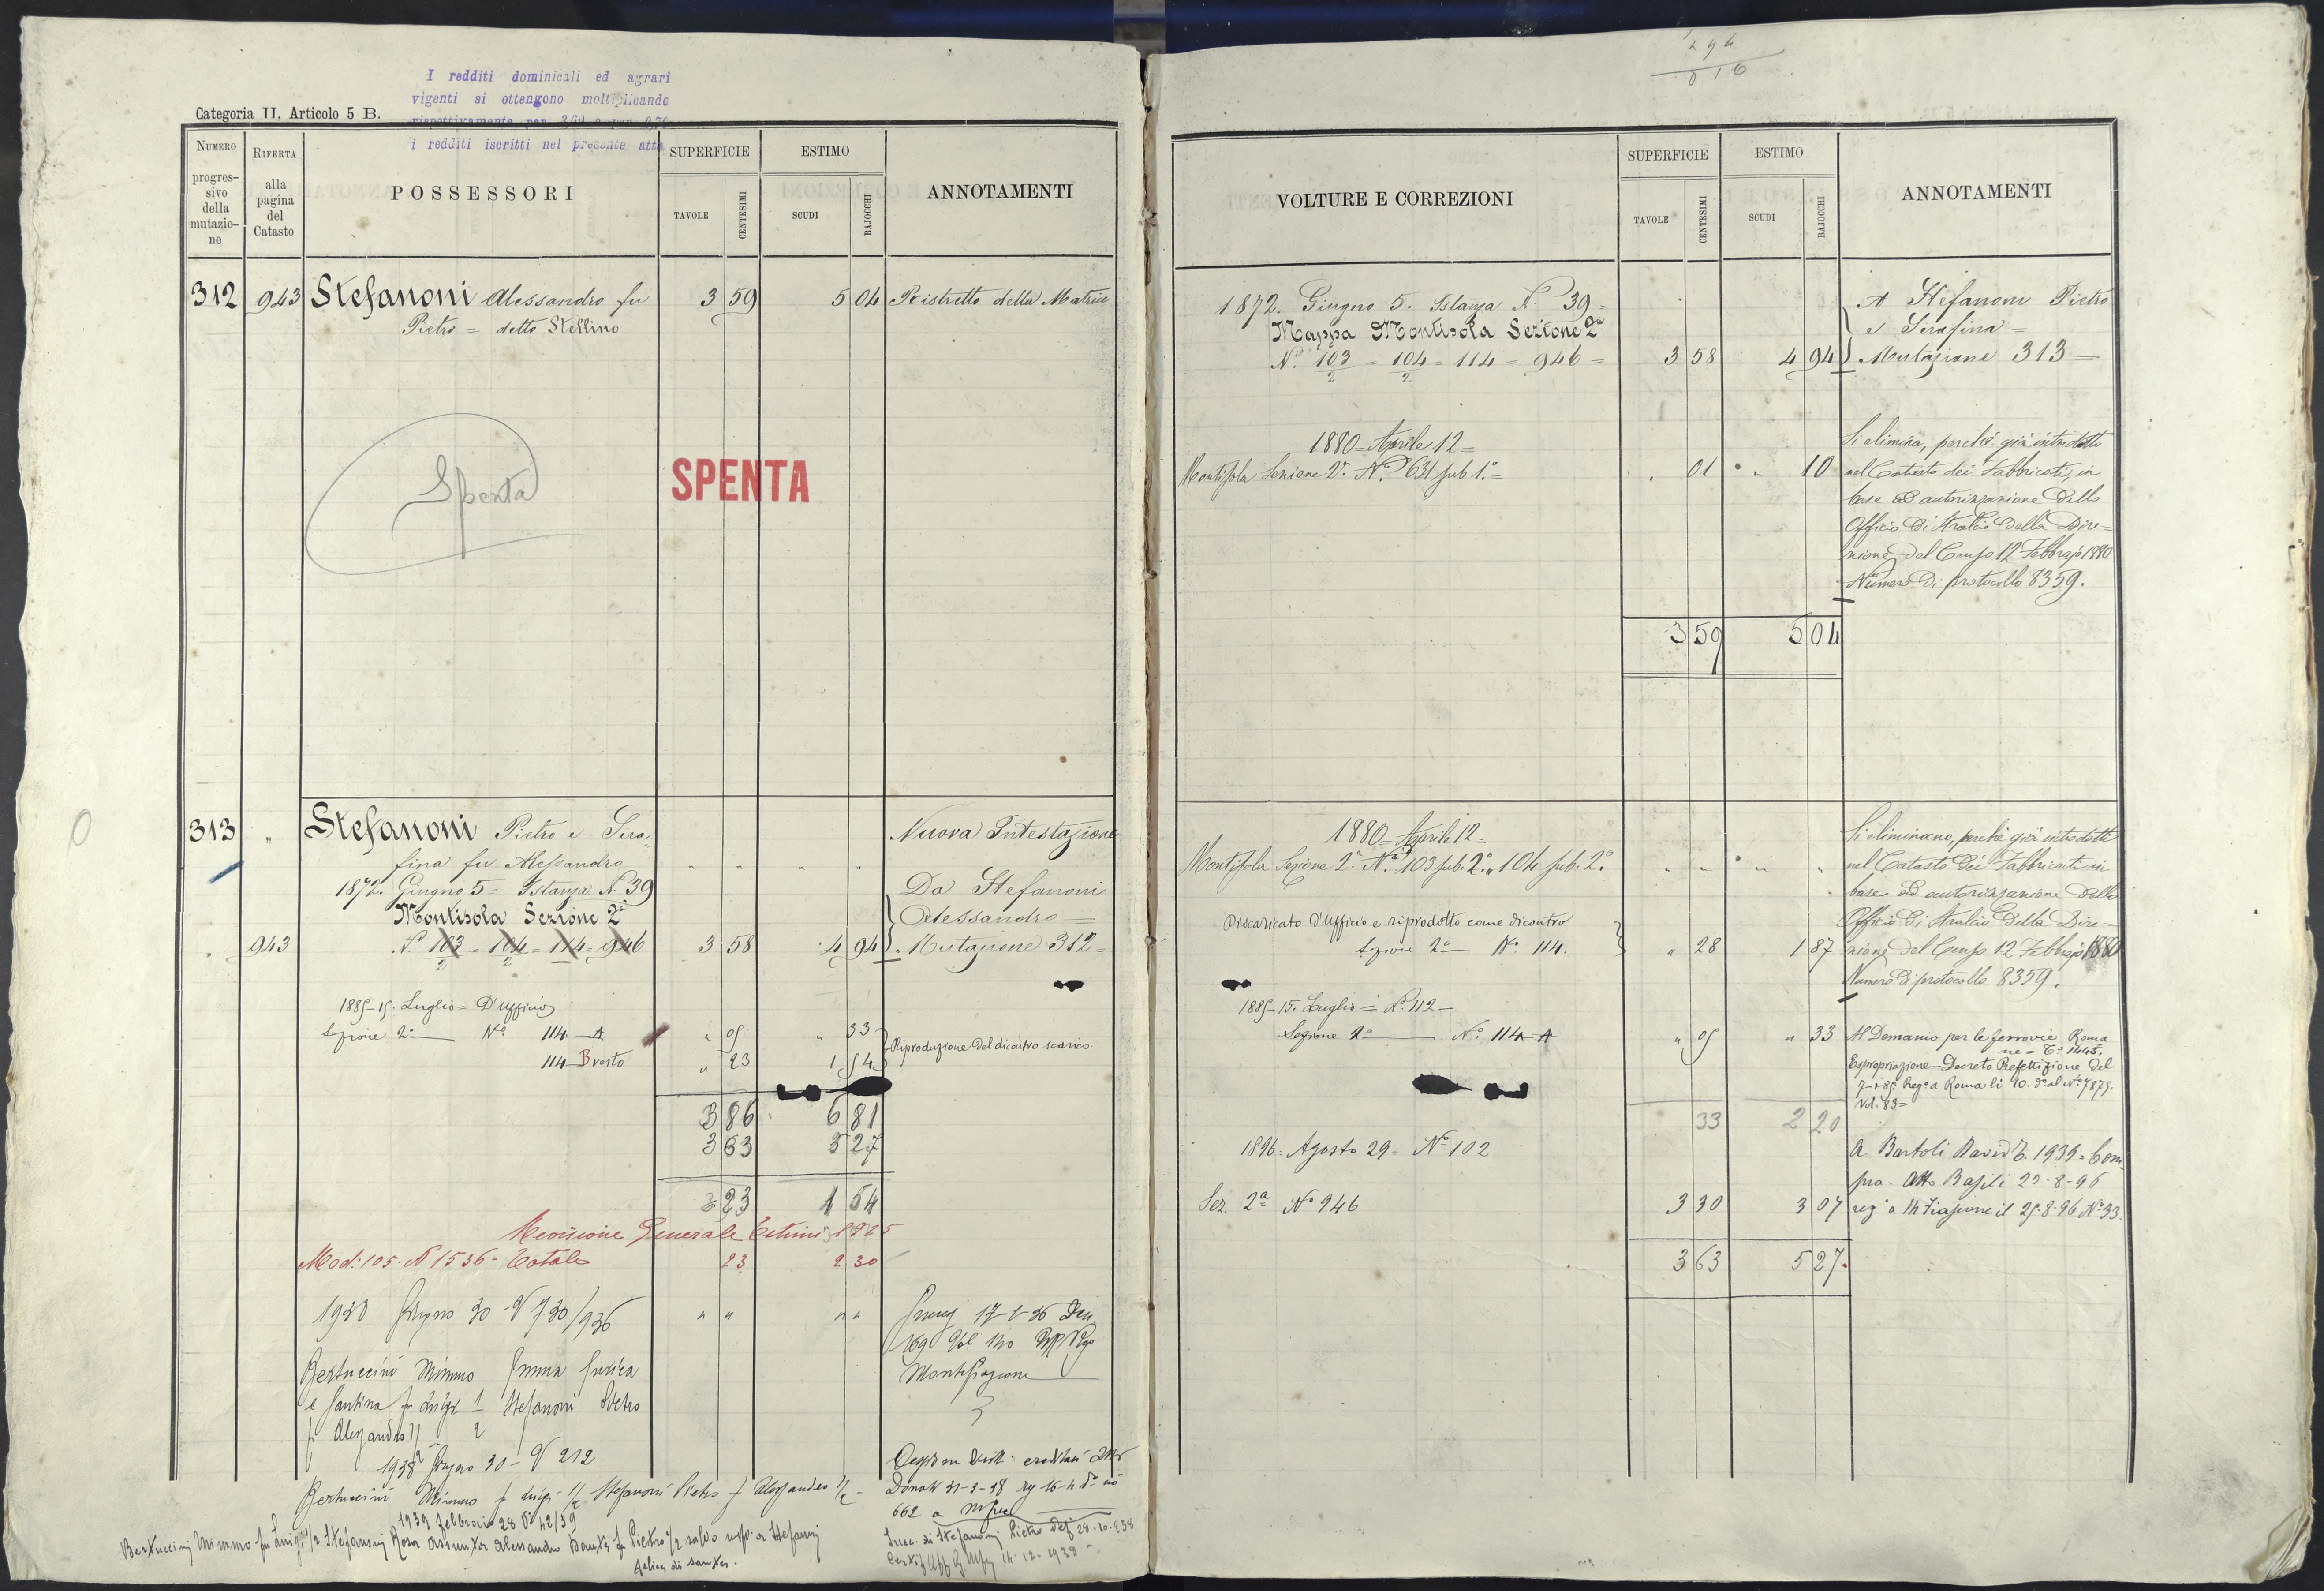 I redditi dominicali ed agrari
vigenti si ottengono moltiplicando
rispettivamente per
i redditi iscritti nel presente atto
Categoria II. Articolo 5 B.
NUMERO progres-sivo della mutazio-ne
RIFERTA alla pagina del Catasto
POSSESSORI
SUPERFICIE
TAVOLE
CENTESIMI
ESTIMO
SCUDI
BAJOCCHI
ANNOTAMENTI
312 943 Stefanoni Alessandro fu 3 59 5 04 Ristretto della Matrice
Pietro = detto Stellino
Spenta
SPENTA
313 " Stefanoni Pietro e Sera- Nuova Intestazione
fina fu Alessandro " " " "
1872. Giugno 5 = Istanza N. 39 Da Stefanoni
Montisola Sezione 2ª Alessandro =
" 943 N. 103/2 = 104/2 = 114 = 946 3 58 4 94 Mutazione 312 =
1885-15. Luglio = D'Ufficio
Sezione 2ª Nº 114-A " 05 " 33
114-B resto " 23 1 54 Riproduzione del dicontro scarico
3 86 6 81
3 63 5 27
23 1 54
Revisione Generale Estimi
Mod: 105. N 1536 - Totale 23 2 30
1938 Giugno 30 - N 730/936 " " " "
Bertuccini Mimmo
e Santina fu Luigi 1/2 Stefanoni Pietro
f Alessandro 1/2
1938 Giugno 30 - N 212
Bertuccini Mimmo f Luigi 1/2 Stefanoni Pietro f Alessandro 1/2
662 a
1939 Febbraio 28 Nº 42/39
Bertuccini Mimmo fu Luigi 1/2 Stefanoni Rosa Assunta Alessandro Santa fu Pietro 1/2 salvo
Succ. di Stefanoni Pietro
14.12.1938
VOLTURE E CORREZIONI
SUPERFICIE
TAVOLE
CENTESIMI
ESTIMO
SCUDI
BAJOCCHI
ANNOTAMENTI
1872. Giugno 5. Istanza N. 39 = A Stefanoni Pietro
Mappa Montisola Sezione 2ª e Serafina =
N. 103/2 = 104/2 = 114 = 946 = 3 58 4 94 Mutazione 313 =
1880 = Aprile 12 =
Montisola Sezione 2ª Nº 631 sub 1.º = " 01 " 10
Si elimina, perchè già introdotto
nel Catasto dei Fabbricati, in
base ad autorizzazione dello
Officio di Stralcio della Dire-
zione del Censo 12 Febbrajo 1880
Numero di protocollo 8359.
3 59 5 04
1880 = Aprile 12 =
Montisola Sezione 2ª Nº 103 sub. 2º, 104 sub. 2º " " " "
Si eliminano, perchè già introdotti
nel Catasto dei Fabbricati in
base ad autorizzazione dello
Officio di Stralcio della Dire-
zione del Censo 12 Febbrajo 1880
Numero di protocollo 8359.
Discaricato d'Ufficio e riprodotto come dicontro
Sezione 2ª Nº 114. " 28 1 87
1885-15. Luglio = Nº 112 -
Sezione 2ª Nº 114-A " 05 " 33
Al Demanio per le ferrovie Roma
ne =
Espropriazione - Decreto Prefettizio del
Vol. 83 =
33 2 20
1896. Agosto 29 = Nº 102
A Bartoli David 1939 = Com
pra - Atto Basili 22-8-96
Sez. 2ª Nº 946 3 30 3 07
3 63 5 27